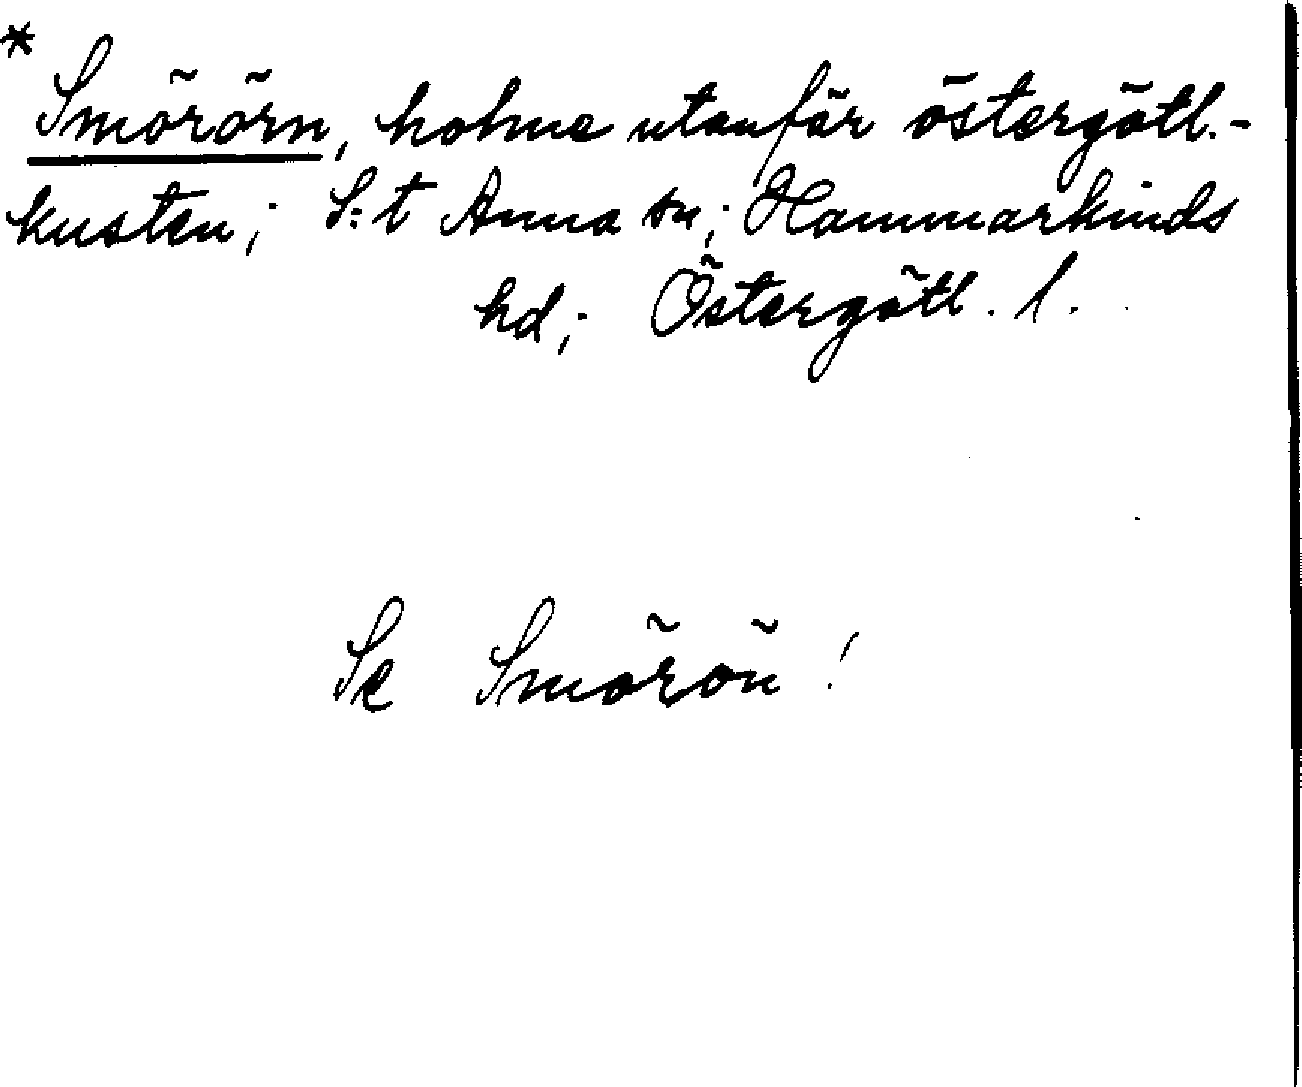 * Smörörn, holme utanför östergötl.-
kusten; S:t Anna sn; Hammarkinds
hd; Östergötl. l.
Se Smörön!